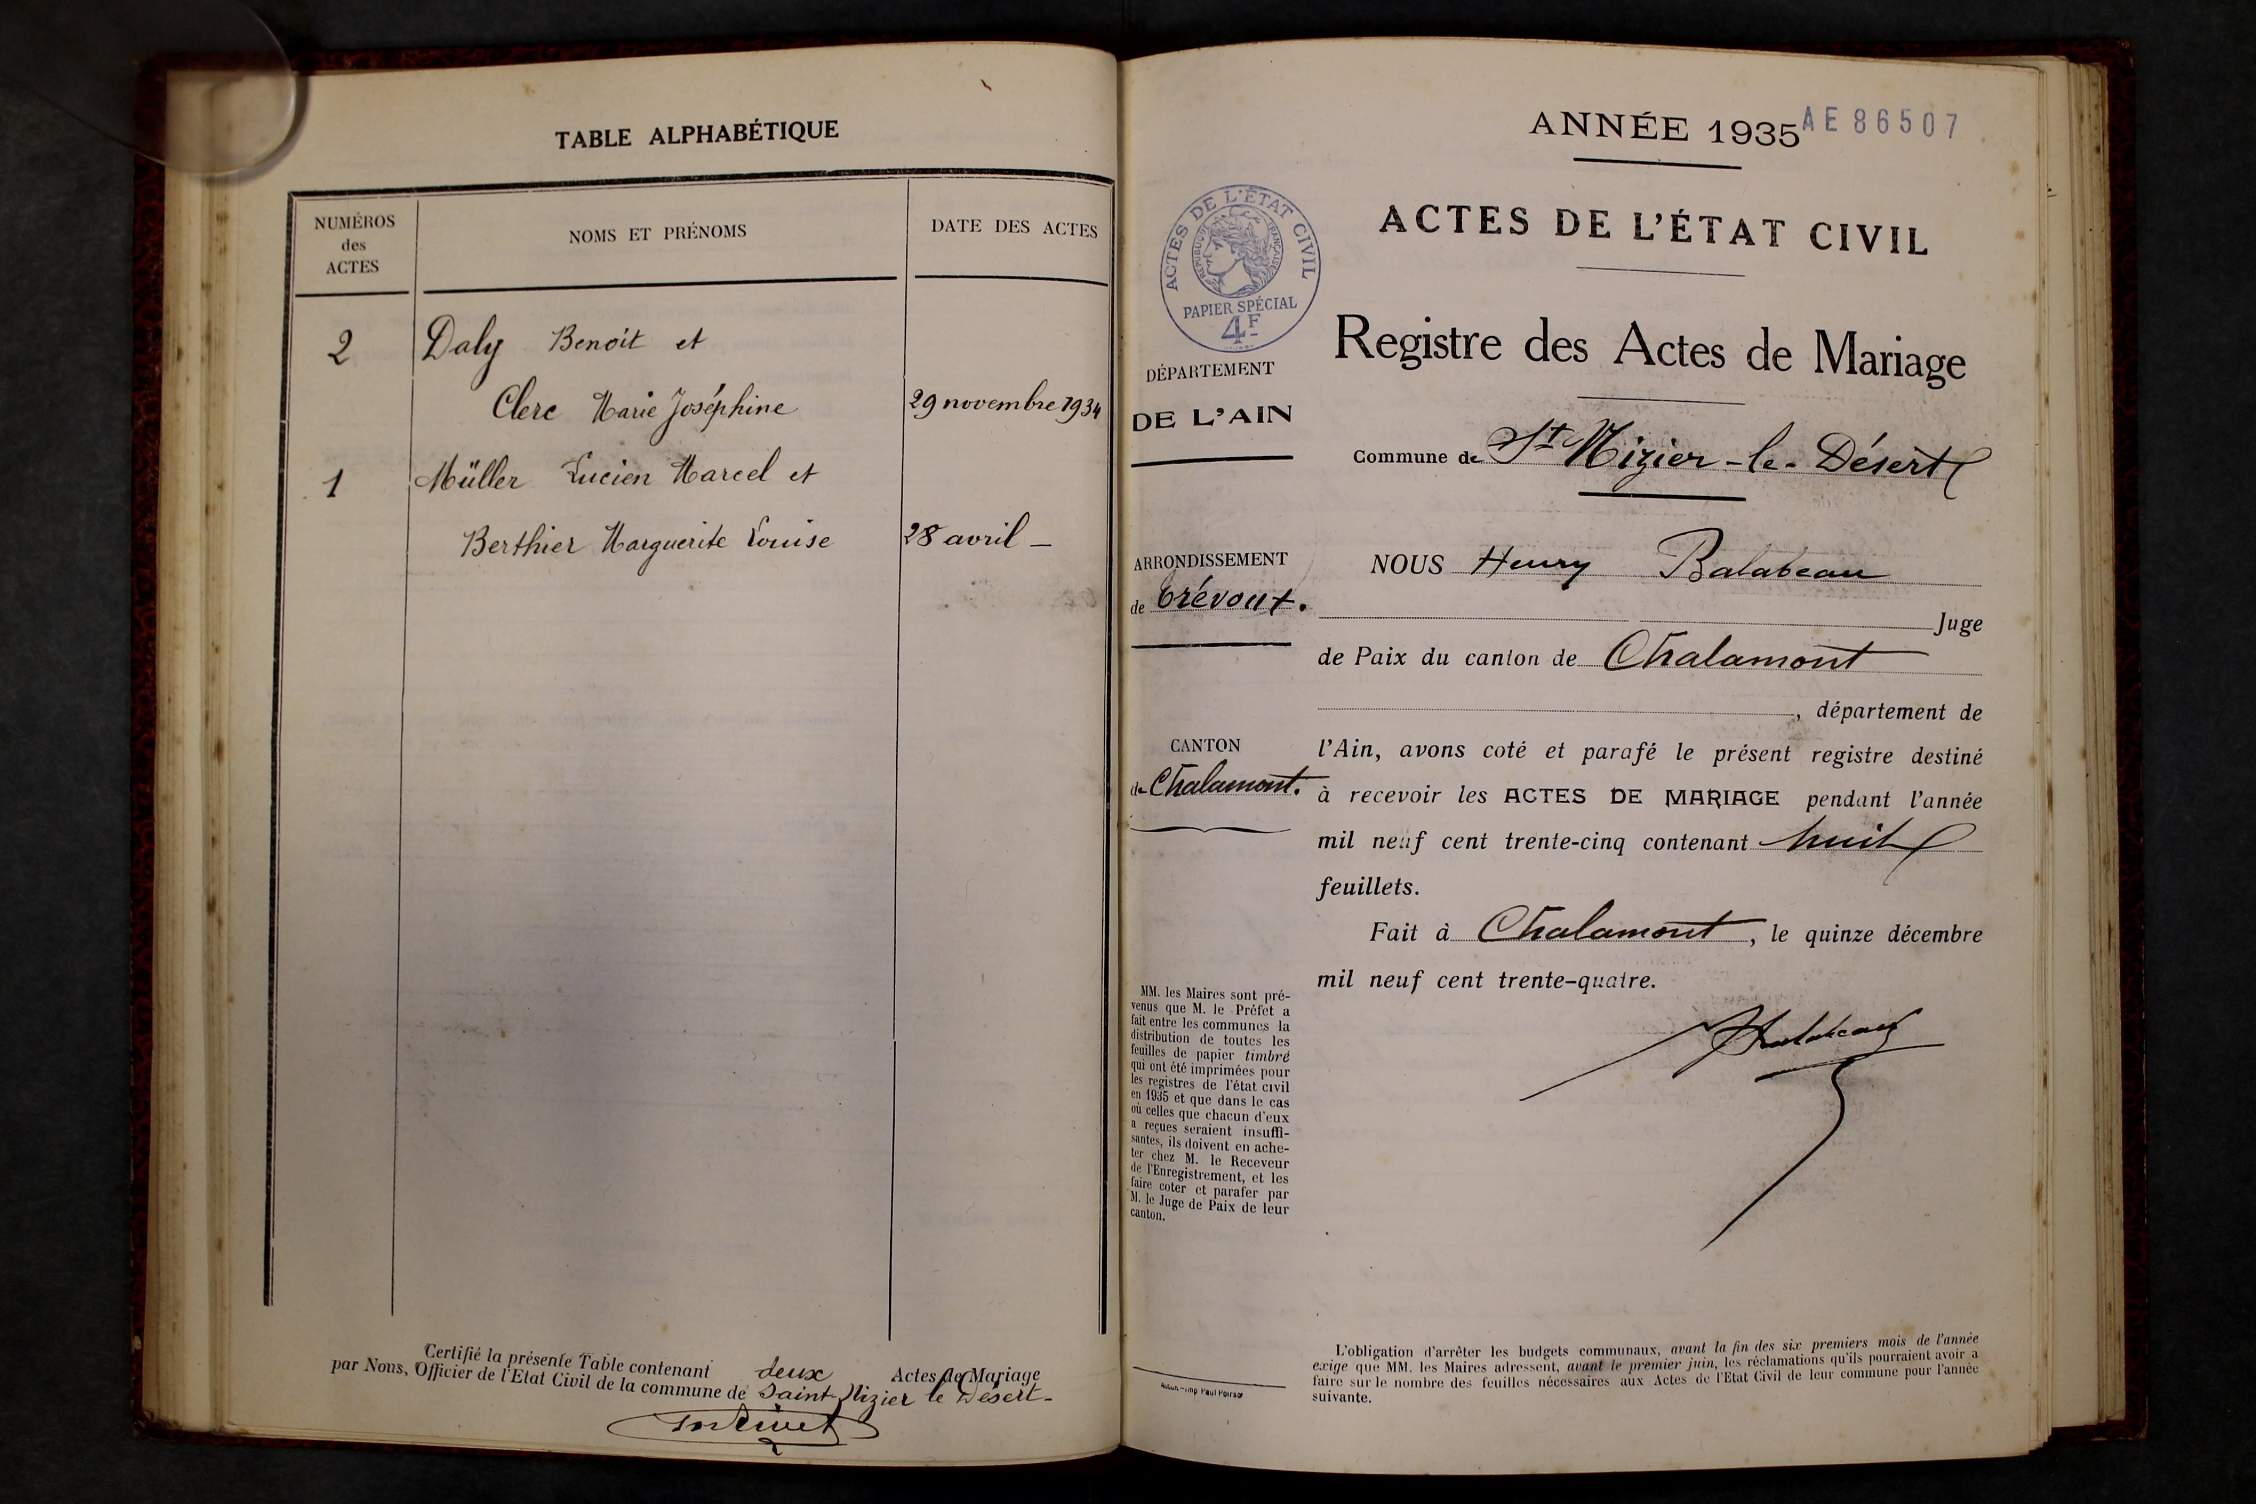 TABLE ALPHABÉTIQUE
NUMÉROS
des
ACTES
NOMS ET PRÉNOMS
DATE DES ACTES
2 Daly Benoit et
Clerc Marie Joséphine 29 novembre 1934
1 Müller Lucien Marcel et
Berthier Marguerite Louise 28 avril –
Certifié la présente Table contenant deux Actes de Mariage
par Nous, Officier de l'Etat Civil de la commune de Saint Nizier le Désert-
ANNÉE 1935
AE 86507
ACTES DE L'ÉTAT CIVIL
RÉPUBLIQUE FRANÇAISE
PAPIER SPÉCIAL
4F
ACTES DE L'ÉTAT CIVIL
Registre des Actes de Mariage
DÉPARTEMENT
DE L'AIN
Commune de St Nizier-le-Désert
ARRONDISSEMENT
de Trévoux.
CANTON
de Chalamont.
NOUS Henry Balabeau
Juge
de Paix du canton de Chalamont
, département de
l'Ain, avons coté et parafé le présent registre destiné
à recevoir les ACTES DE MARIAGE pendant l'année
mil neuf cent trente-cinq contenant huit
feuillets.
Fait à Chalamont, le quinze décembre
mil neuf cent trente-quatre.
MM. les Maires sont pré-
venus que M. le Préfet a
fait entre les communes la
distribution de toutes les
feuilles de papier timbré
qui ont été imprimées pour
les registres de l'état civil
en 1935 et que dans le cas
où celles que chacun d'eux
a reçues seraient insuffi-
santes, ils doivent en ache-
ter chez M. le Receveur
de l'Enregistrement, et les
faire coter et parafer par
M. le Juge de Paix de leur
canton.
L'obligation d'arrêter les budgets communaux, avant la fin des six premiers mois de l'année
exige que MM. les Maires adressent, avant le premier juin, les réclamations qu'ils pourraient avoir à
faire sur le nombre des feuilles nécessaires aux Actes de l'Etat Civil de leur commune pour l'année
suivante.